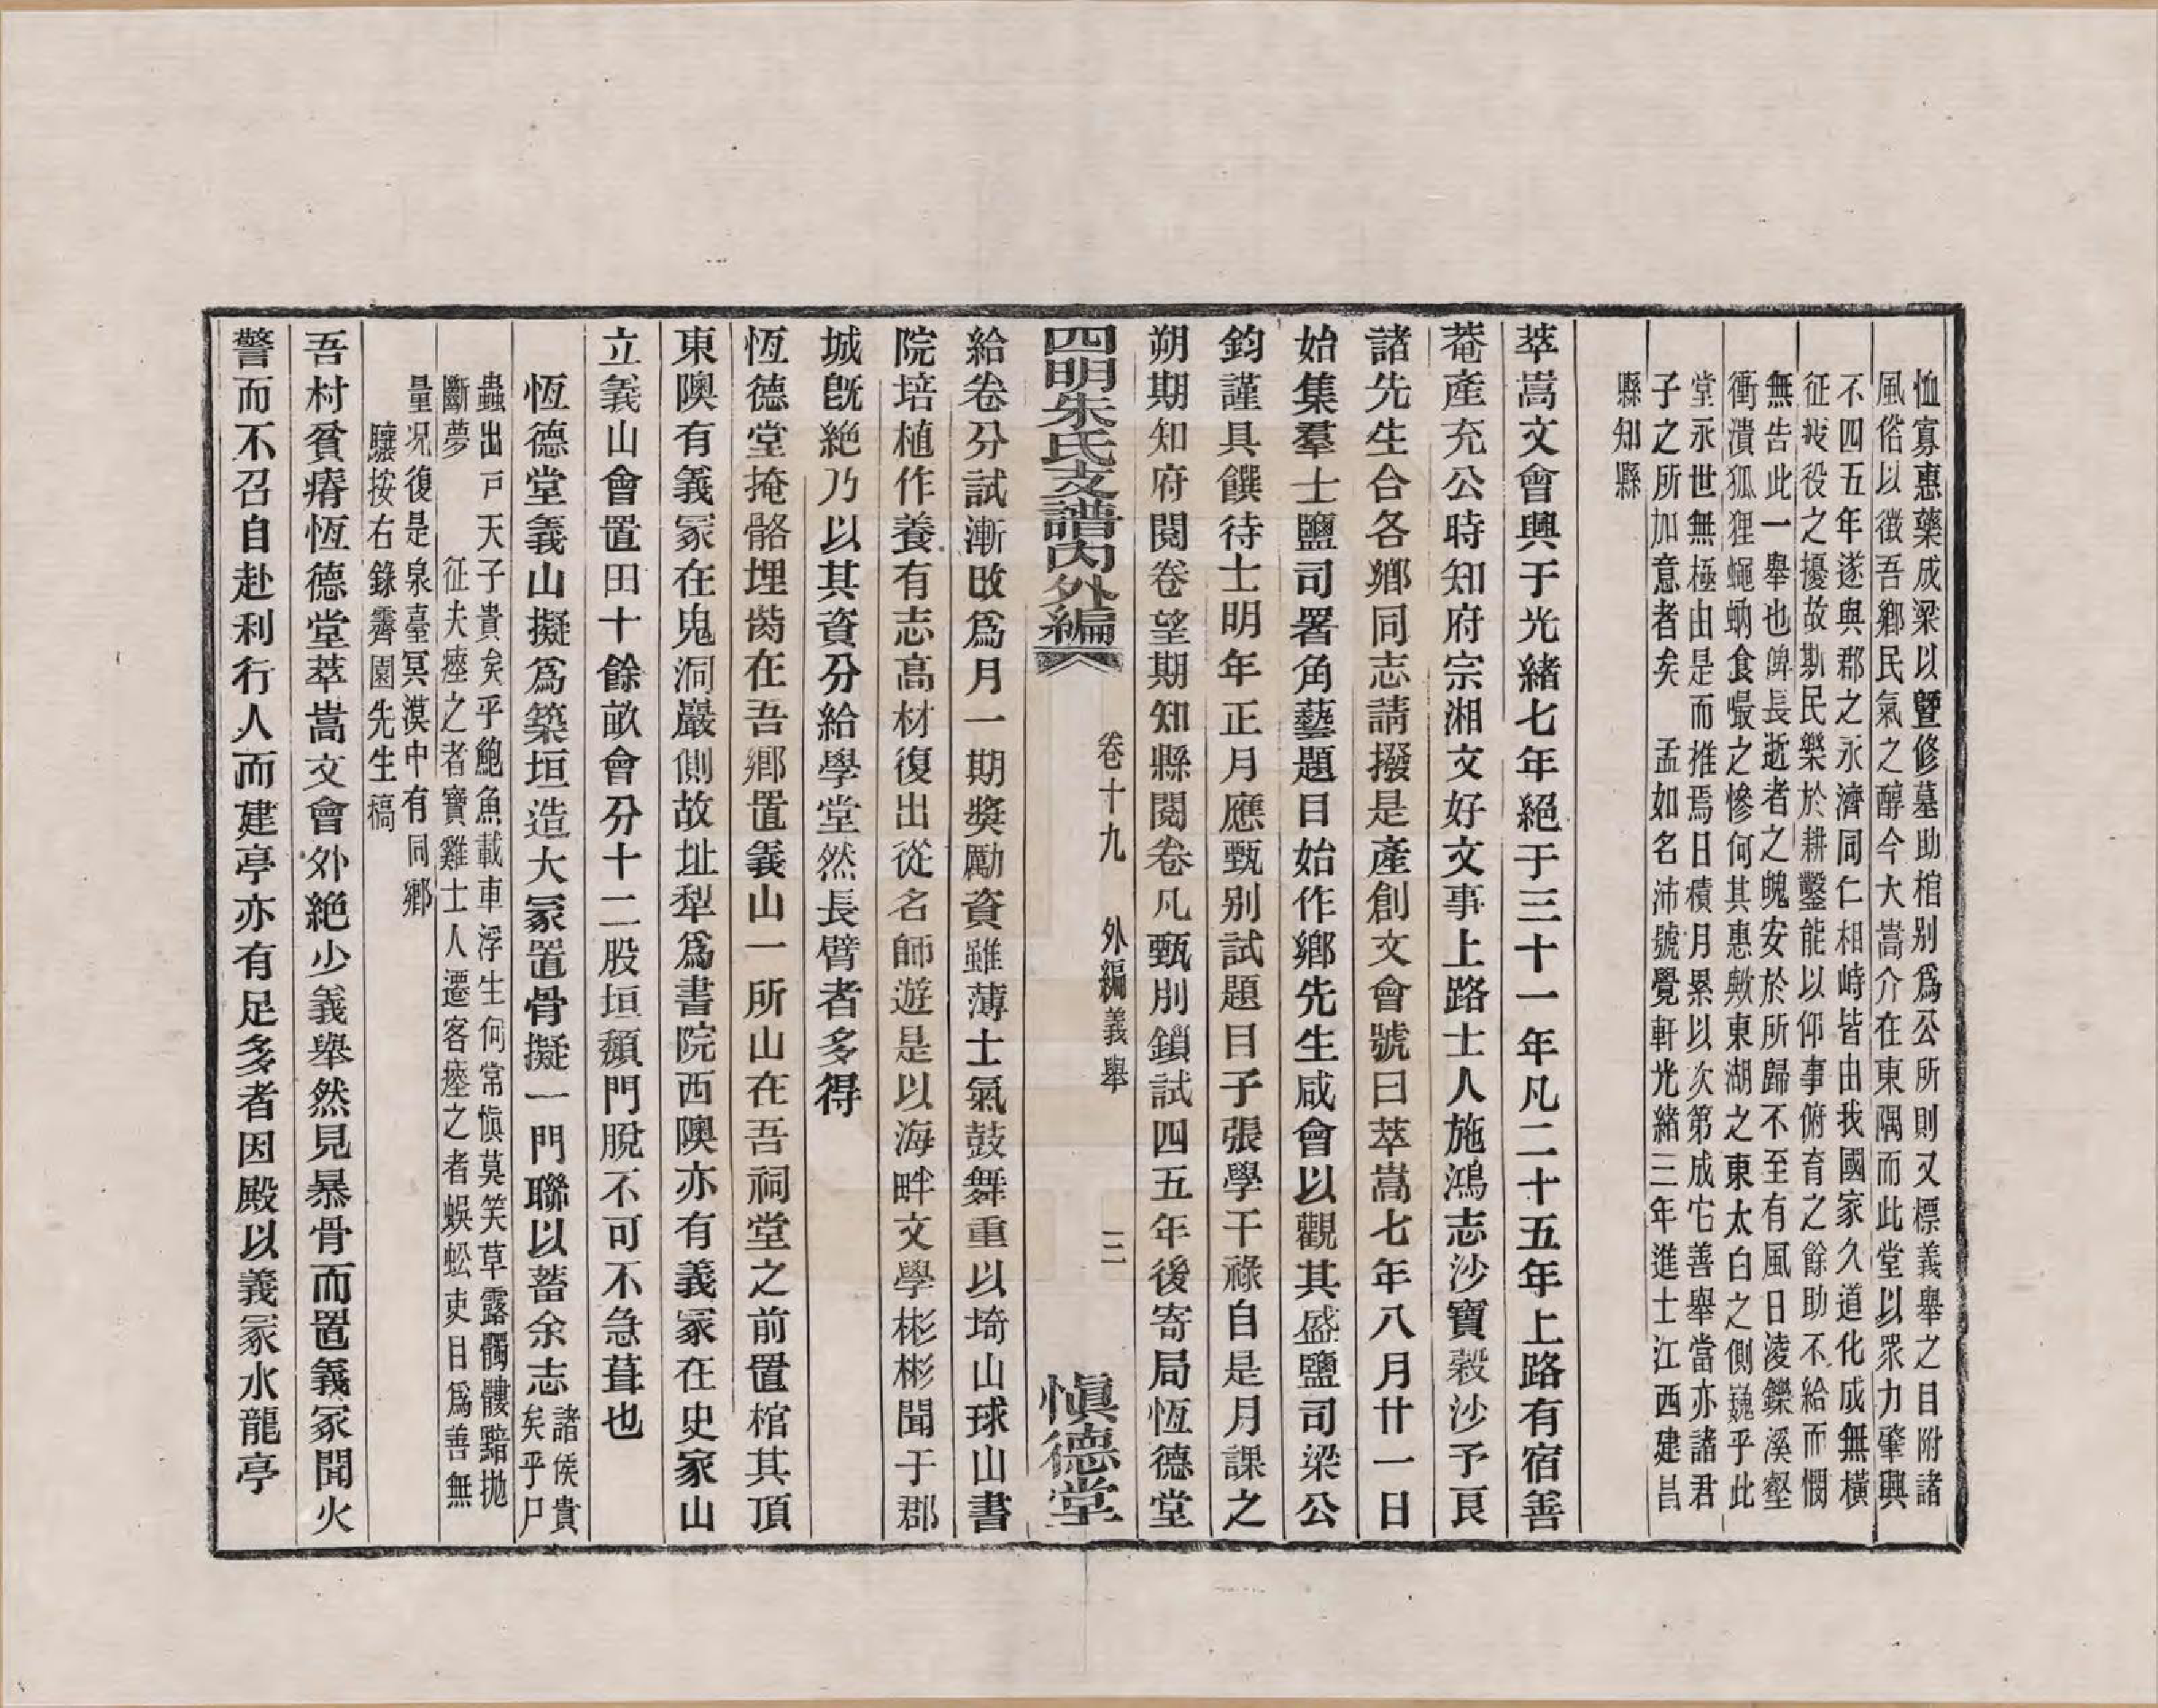 恤寡惠藥成梁以曁修墓助棺别爲公所則又標義舉之目附諸
風俗以徵吾鄉民氣之醇今大嵩介在東隅而此堂以眾力肇興
不四五年遂與郡之永濟同仁相峙皆由我國家久道化成無橫
征疲役之擾故斯民樂於耕鑿能以仰事俯育之餘助不給而憫
無告此一舉也俾長逝者之魄安於所歸不至有風日淩鑠溪壑
衝潰狐狸蠅蚋食嘬之慘何其惠歟東湖之東太白之側巍乎此
堂永世無極由是而推焉日積月累以次第成它善舉當亦諸君
子之所加意者矣　孟如名沛號覺軒光緒三年進士江西建昌
縣知縣
萃嵩文會興于光緒七年絕于三十一年凡二十五年上路有宿善
菴產充公時知府宗湘文好文事上路士人施鴻志沙寶穀沙予艮
諸先生合各鄉同志請撥是產創文會號曰萃嵩七年八月廿一日
始集羣士鹽司署角藝題目始作鄉先生咸會以觀其盛鹽司梁公
鈞謹具饌待士明年正月應甄别試題目子張學干祿自是月課之
朔期知府閱卷望期知縣閱卷凡甄別鎖試四五年後寄局恆德堂
四明朱氏支譜內外編
卷十九　外編義舉　三
愼德堂
給卷分試漸改爲月一期奬勵資雖薄士氣鼓舞重以埼山球山書
院培植作養有志高材復出從名師遊是以海畔文學彬彬聞于郡
城旣絕乃以其資分給學堂然長臂者多得
恆德堂掩骼埋胔在吾鄉置義山一所山在吾祠堂之前置棺其頂
東隩有義冢在鬼洞巖側故址犁爲書院西隩亦有義冢在史家山
立義山會置田十餘畝會分十二股垣頽門脫不可不急葺也
恆德堂義山擬爲築垣造大冢置骨擬一門聯以蓄余志諸侯貴
矣乎尸
蟲出戸天子貴矣乎鮑魚載車浮生何常愼莫笑草露髑髏黯拋
斷夢　征夫瘞之者寶雞士人遷客瘞之者蜈蚣吏目爲善無
量况復是泉臺冥漠中有同鄉
驤按右錄霽園先生稿
吾村貧瘠恆德堂萃嵩文會外絕少義舉然見暴骨而置義冢聞火
警而不召自赴利行人而建亭亦有足多者因殿以義冢水龍亭